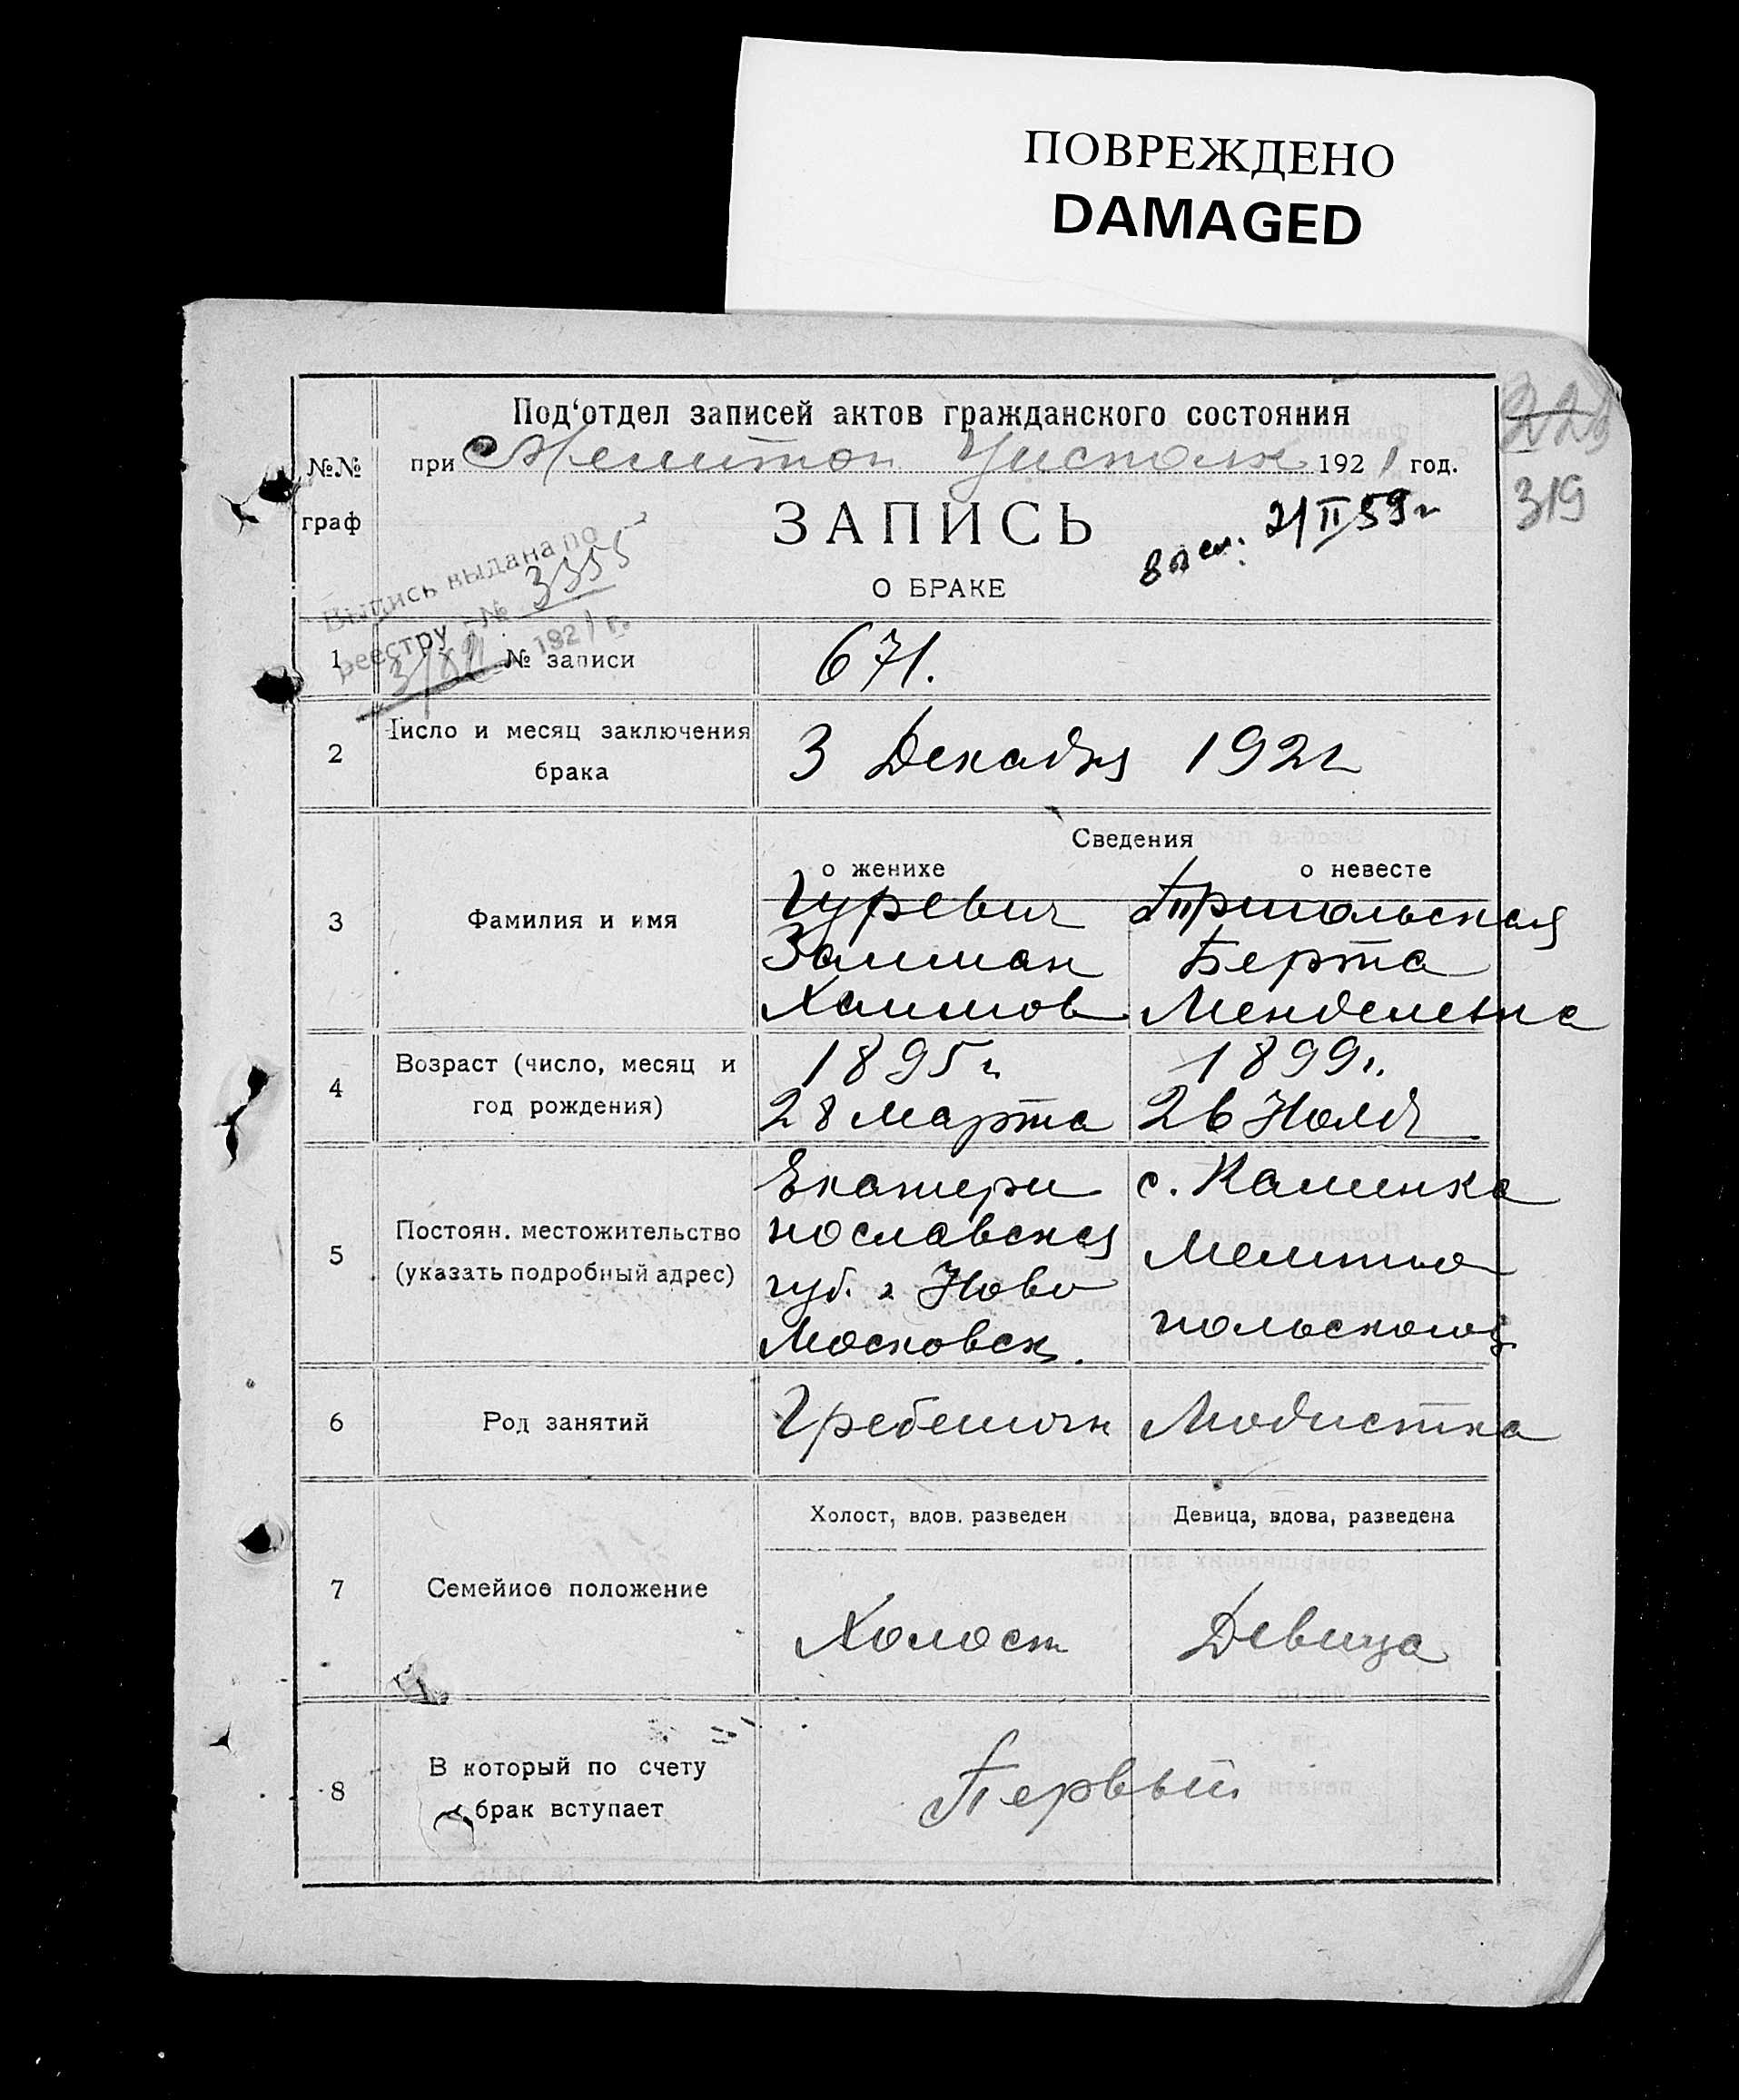 ПОВРЕЖДЕНО
DAMAGED
Под'отдел записей актов гражданского состояния
№№ граф
при 1921 год.
319
ЗАПИСЬ
21 II 59 г
О БРАКЕ
Выпись выдана по
реестру № 3355
1921 г.
1 № записи 671.
2 Число и месяц заключения брака 3 Декабря 1921
Сведения
о женихе о невесте
3 Фамилия и имя
Гуревич
Залман Берта
Хаимов Менделевна
4 Возраст (число, месяц и год рождения)
1895 г. 1899 г.
28 марта 26 Нояб
5 Постоян. местожительство (указать подробный адрес)
Екатери с. Каменка
нославская Мелито
губ. г Ново польского у
Московск.
6 Род занятий Гребенщик Модистка
Холост, вдов. разведен Девица, вдова, разведена
7 Семейное положение Холост Девица
8 В который по счету брак вступает Первый